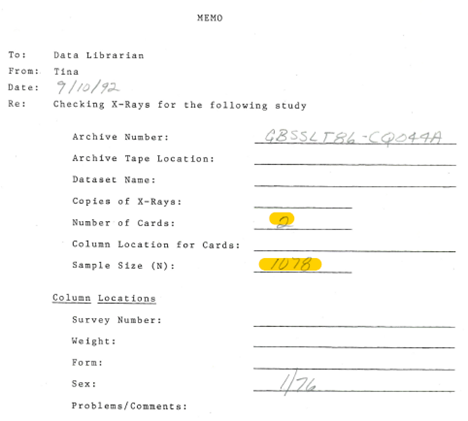 MEMO
To: Data Librarian
From: Tina
Date: 9/10/92
Re: Checking X-Rays for the following study
Archive Number: GBSSLT86-CQ044A
Archive Tape Location:
Dataset Name:
Copies of X-Rays:
Number of Cards: 2
Column Location for Cards:
Sample Size (N): 1078
Column Locations
Survey Number:
Weight:
Form:
Sex: 1/76
Problems/Comments: